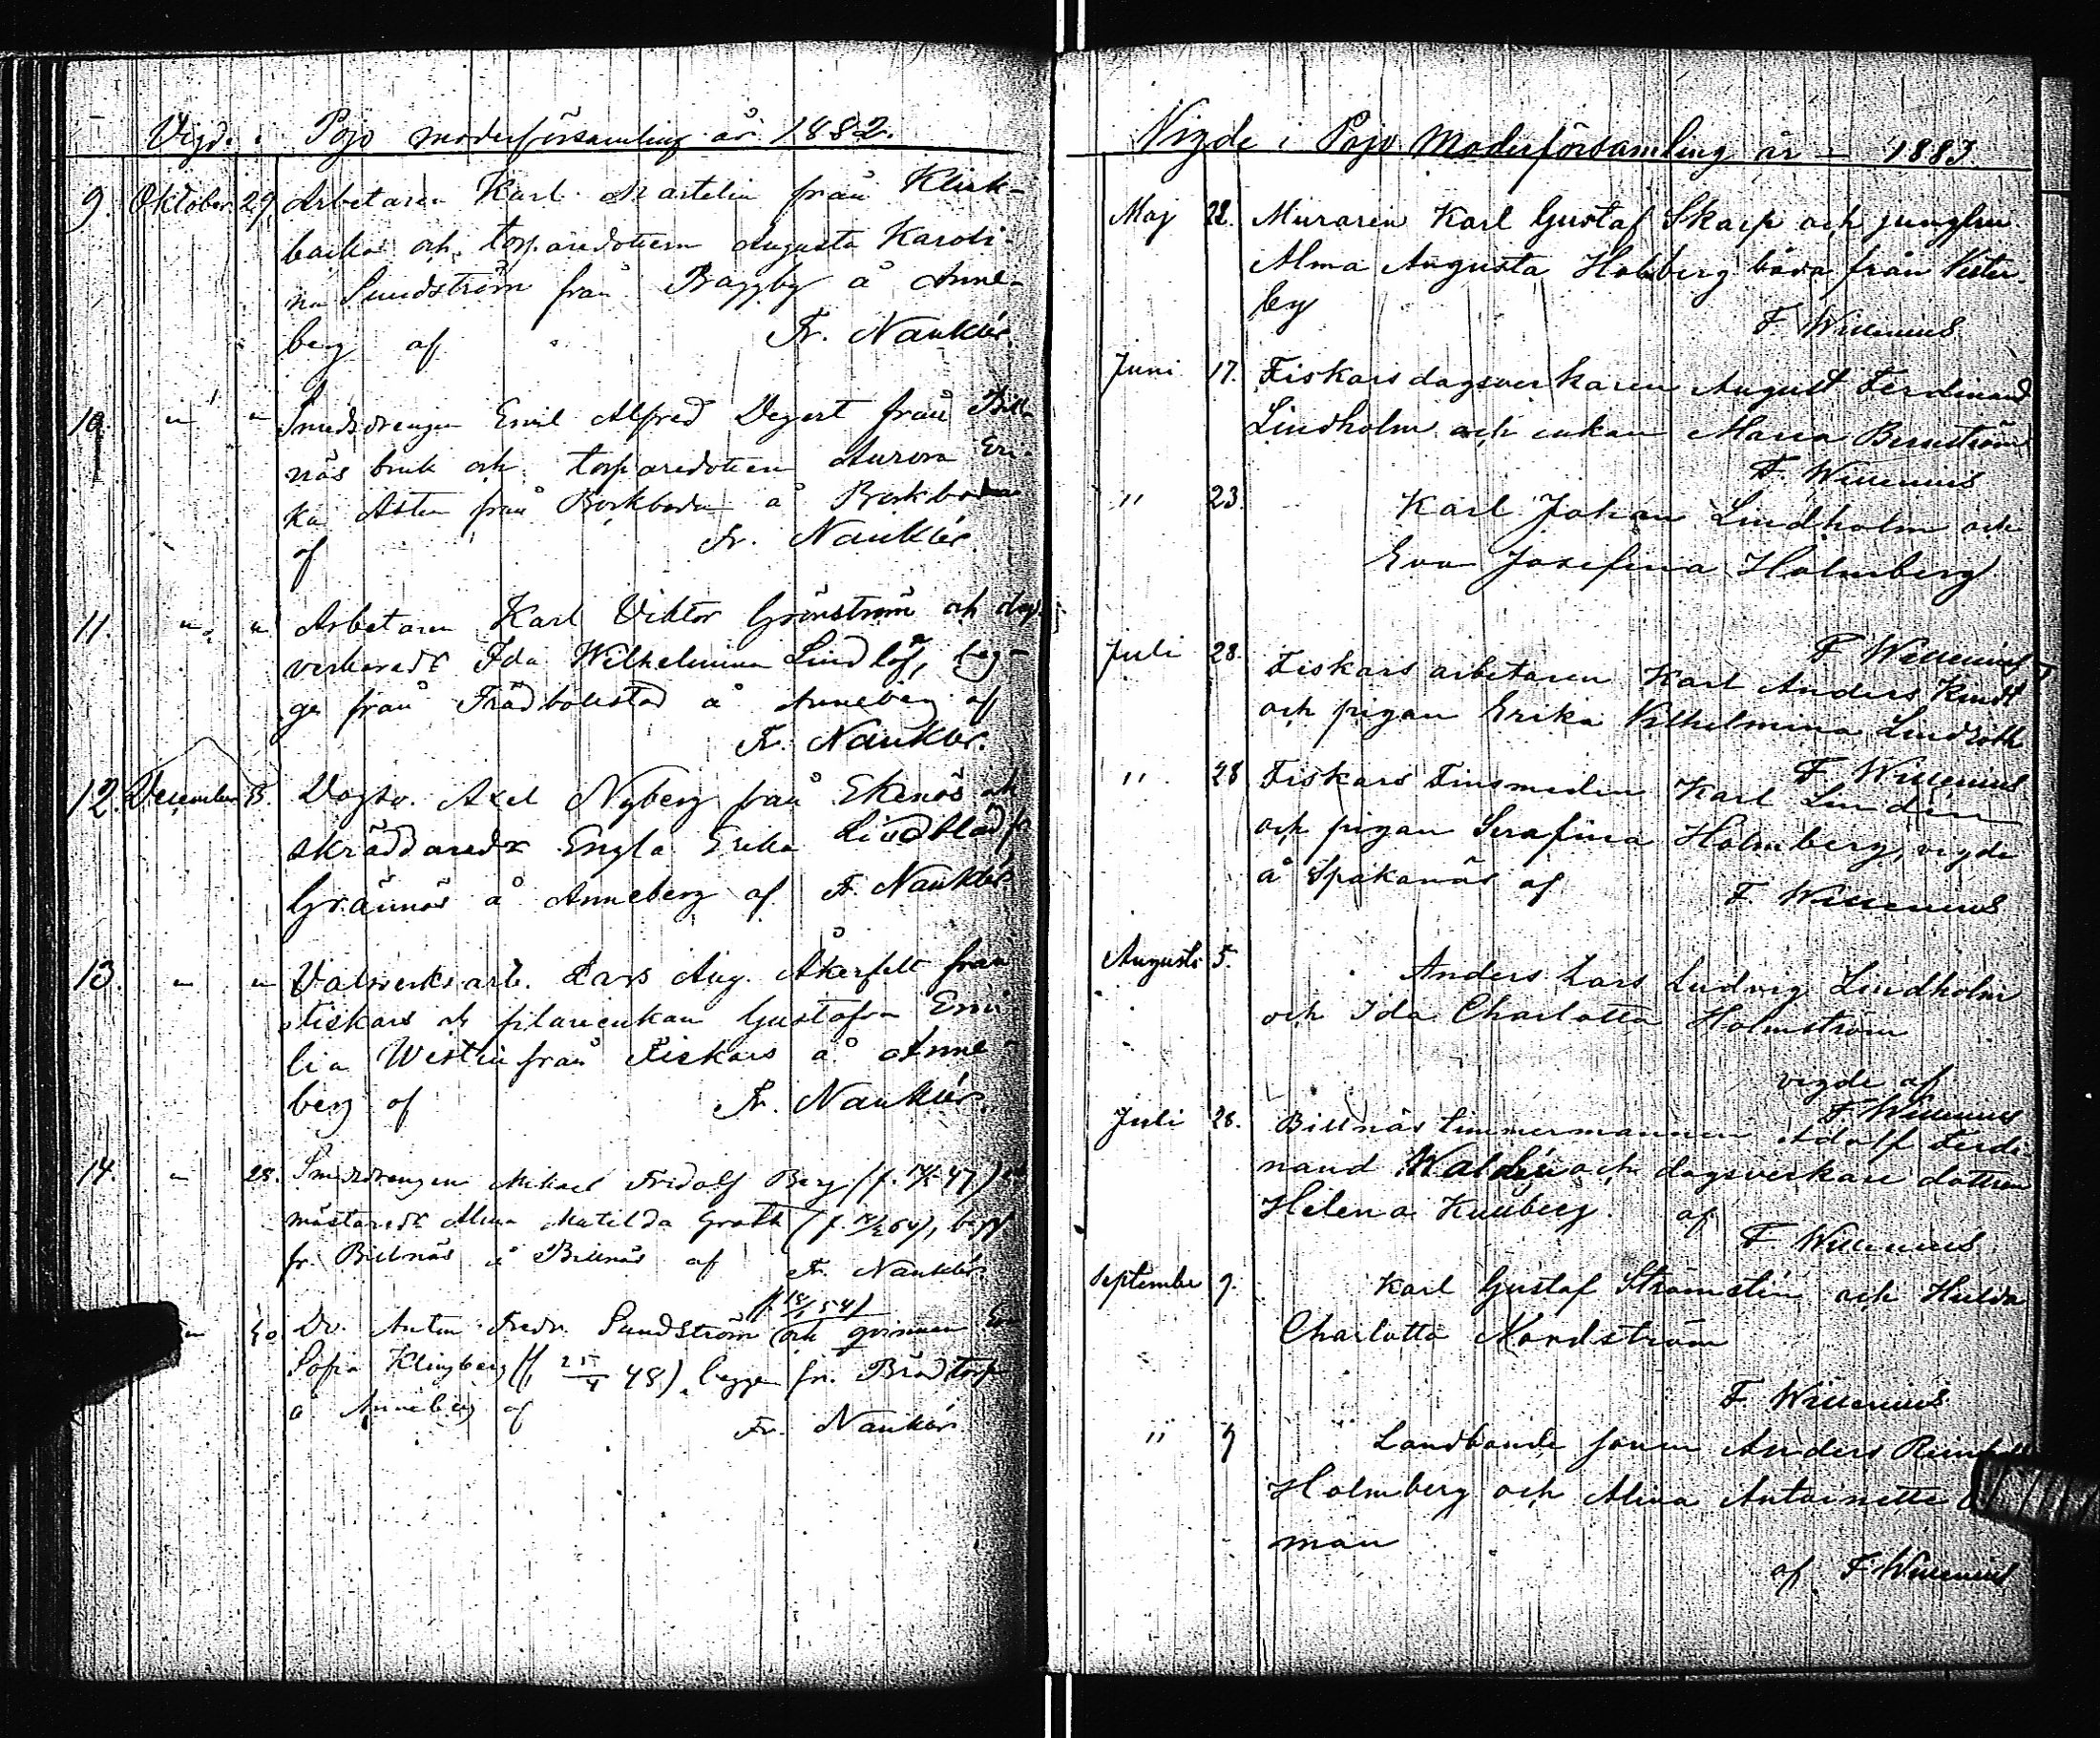 Vigde i Pojo moderförsamling år 1882.
9. Oktober 29. Arbetaren Karl Martelin från Klink-
backa och torparedottern Augusta Karoli-
na Sundström från Baggby å Anne-
berg af Fr. Nauklér.
10. " " Smedsdrengen Emil Alfred Degert från Bill-
näs bruk och torparedottern Aurora Eri-
ka Asten från Borkboda å Borkboda
af Fr. Nauklér.
11. " " Arbetaren Karl Viktor Grönström och dag-
verkaredr Ida Wilhelmina Lindlöf, beg-
ge från Trädbolstad å Anneberg af
Fr. Nauklér.
12. December 3. Dagsv. Axel Nyberg från Ekenäs och
skräddaredr Engla Erika Lindblad fr
Grännäs å Anneberg af Fr. Nauklér
13. " " Valsverksarb. Lars Aug. Åkerfelt från
Fiskars och filareenkan Gustafva Emi-
lia Westin från Fiskars å Anne-
berg af Fr. Nauklér.
14. " 28. Smedsdrengen Mikael Fridolf Berg (f. 47) och
mästaredr Alma Matilda Groth (f. 64), begge
fr. Billnäs å Billnäs af Fr. Nauklér.
" 30. Dr. Anton Fredr. Sundström (f. 18/ 54) och qvinnan
Sofia Klingberg (f. 25/4 48) begge fr. Brädtorp
å Anneberg af
Fr. Nauklér.
Vigde i Pojo Moderförsamling år – 1883
Maj 22. Muraren Karl Gustaf Skarp och jungfrun
Alma Augusta Holmberg båda från Vester-
by
F. Willenius
Juni 17. Fiskars dagsverkaren August Ferdinand
Lindholm och enkan Maria Bernström
F. Willenius
" 23. Karl Johan Lindholm och
Eva Josefina Holmberg
F Willenius
Juli 28. Fiskars arbetaren Karl Anders Kindt
och pigan Erika Vilhelmina Lindroth
F Willenius
" 28 Fiskars Finsmeden Karl Lindén
och pigan Serafina Holmberg, vigde
å Spakanäs af
F. Willenius
Augusti 5. Anders Lars Ludvig Lindholm
och Ida Charlotta Holmström
vigde af
F Willenius
Juli 28. Billnäs timmermannen Adolf Ferdi-
nand Waldén och dagsverkare dottren
Helena Kullberg af
F Willenius
September 9. Karl Gustaf Strömstén och Hulda
Charlotta Nordström
F. Willenius
" 9 Landbonde sonen Anders
Holmberg och Alina Antoinette
man
af F Willenius